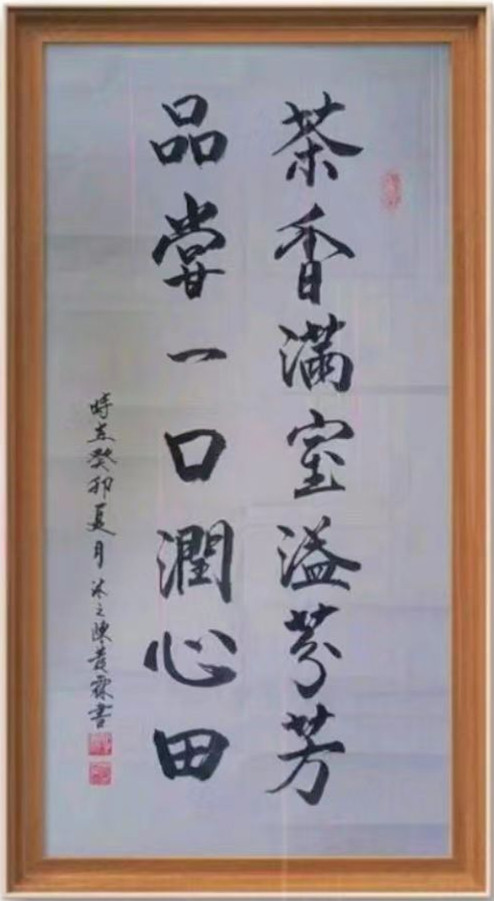 茶香滿室溢芬芳
品嘗一口潤心田
時在癸卯夏月沐之陳黃霖書